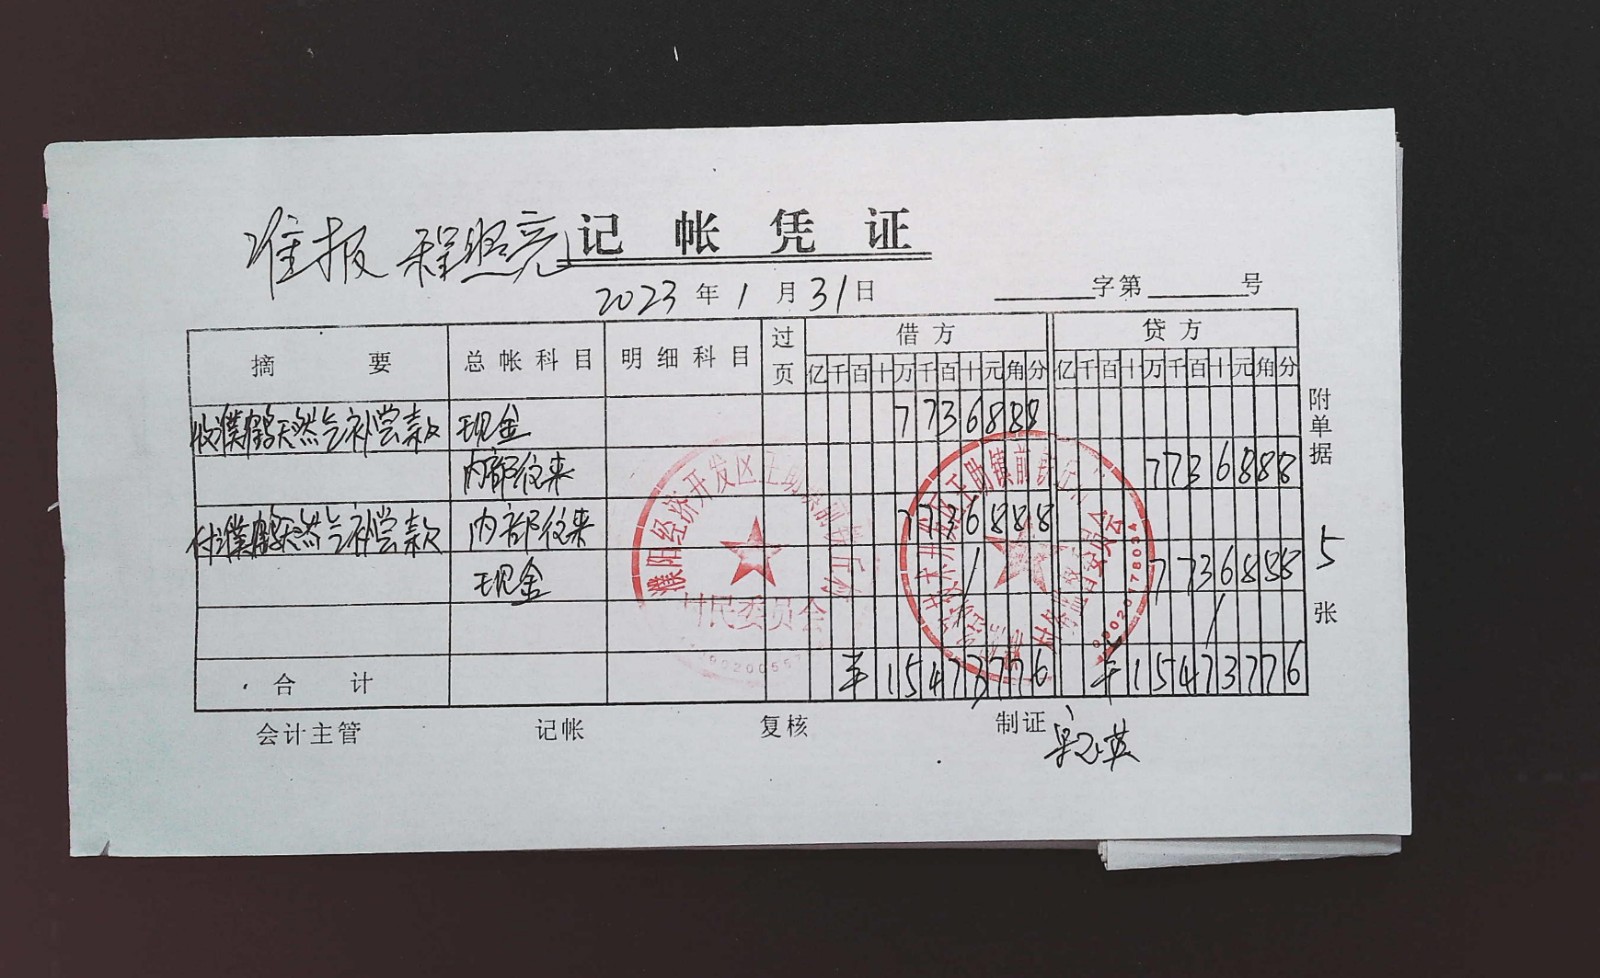 准报 程照亮 记帐凭证
2023 年 1 月 31 日 字第 号
摘要 总帐科目 明细科目 过页 借方 贷方
亿千百十万千百十元角分 亿千百十万千百十元角分
收濮鹤天然气补偿款 现金 7736888
内部往来 7736888
付濮鹤天然气补偿款 内部往来 7736888
现金 7736888
合计 ¥15473776 ¥15473776
附单据 5 张
会计主管 记帐 复核 制证
濮阳经济开发区王助镇前
村民委员会